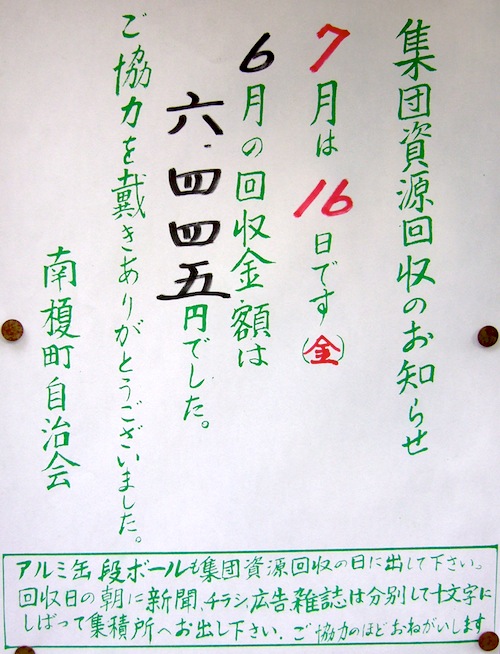 集団資源回収のお知らせ
7月は16日です(金)
6月の回収金額は
六.四四五円でした。
ご協力を戴きありがとうございました。
南榎町自治会
アルミ缶段ボールも集団資源回収の日に出して下さい。
回収日の朝に新聞、チラシ、広告、雑誌は分別して十文字に
しばって集積所へお出し下さい.ご協力のほどおねがいします